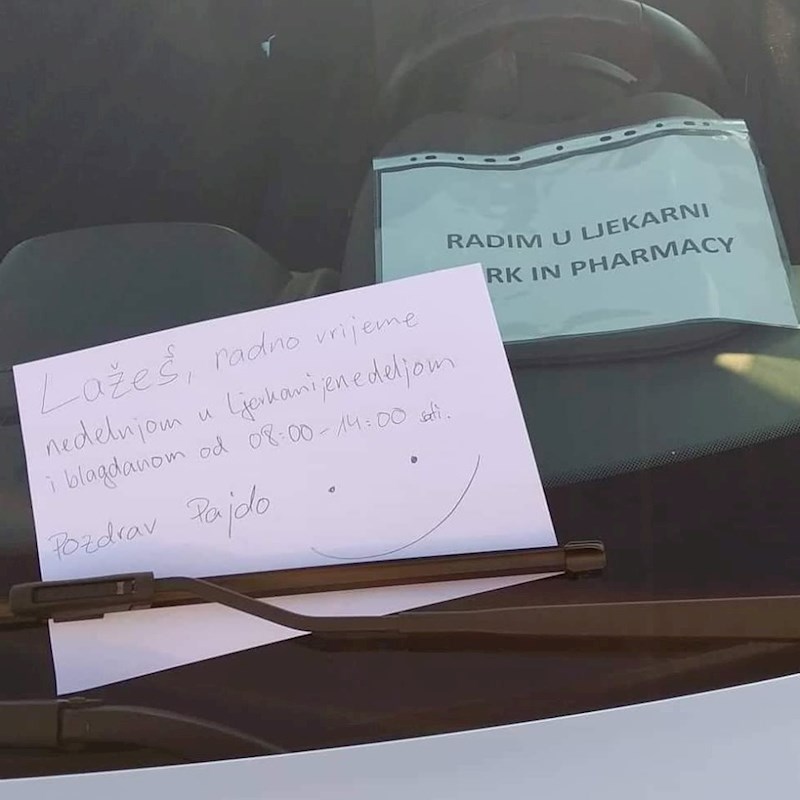 RADIM U LJEKARNI
RK IN PHARMACY
Lažeš, radno vrijeme
nedelnjom u ljerkani je nedeljom
i blagdanom od 08:00-14:00 sati.
Pozdrav Pajdo